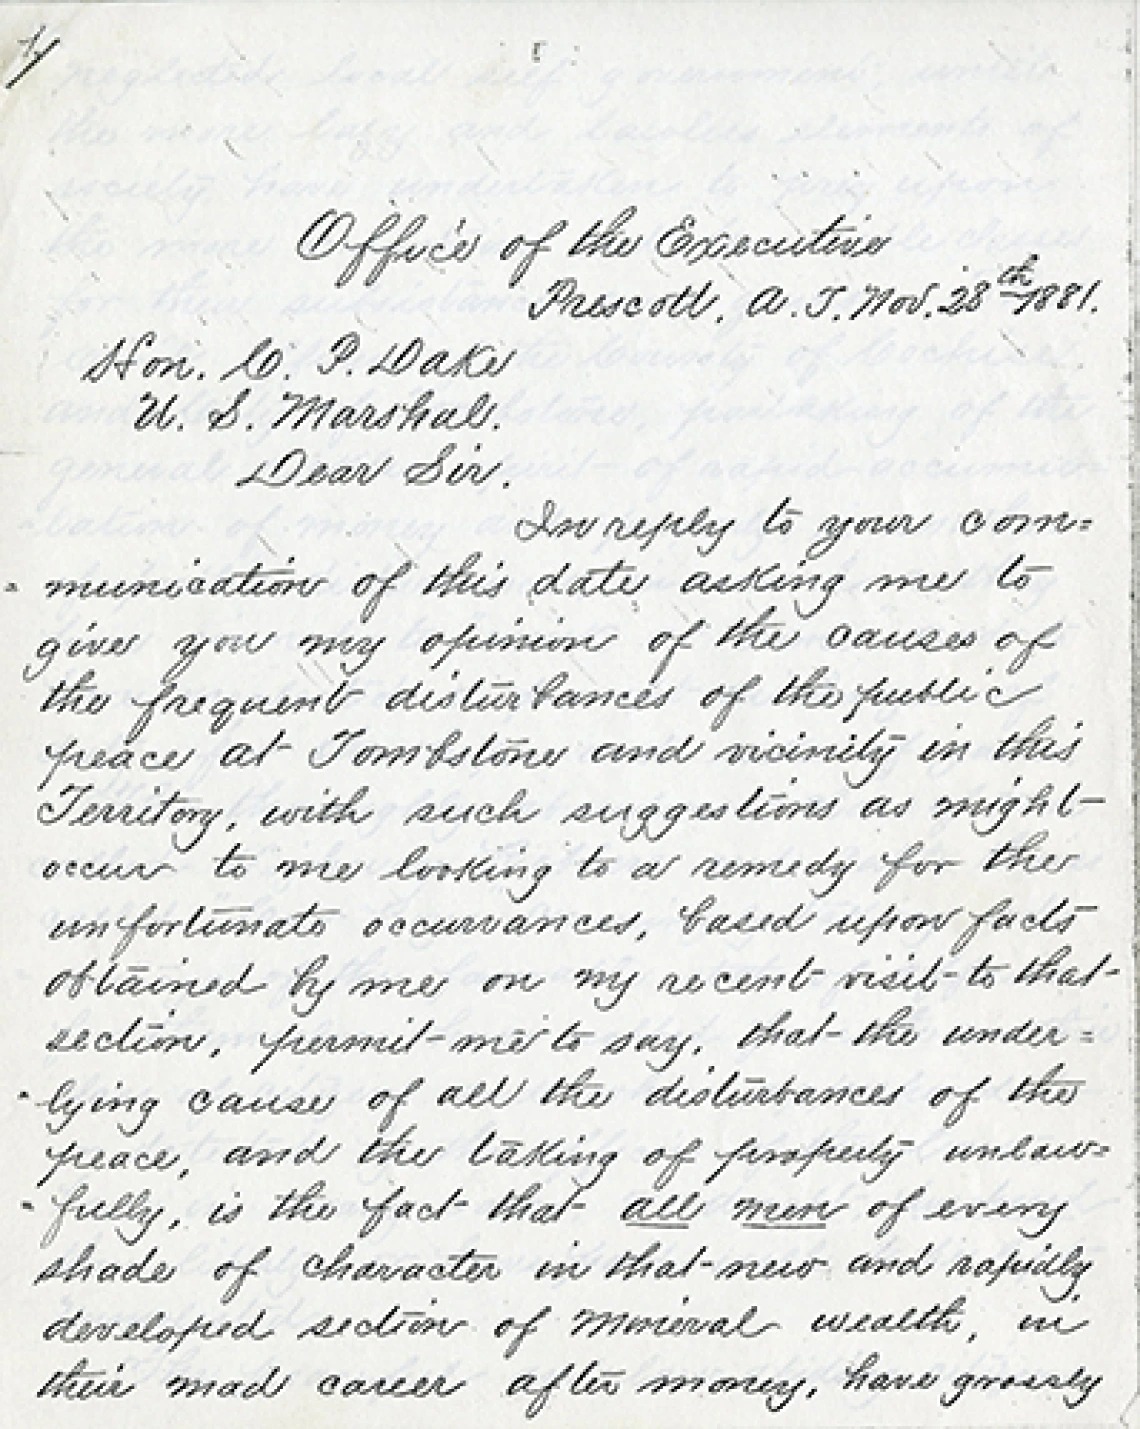 Office of the Executive
Prescott, A. T. Nov. 28th 1881.
Hon. C. P. Dake
U. S. Marshal.
Dear Sir.
In reply to your com=
-munication of this date asking me to
give you my opinion of the causes of
the frequent disturbances of the public
peace at Tombstone and vicinity in this
Territory, with such suggestions as might
occur to me looking to a remedy for the
unfortunate occurrances, based upon facts
obtained by me on my recent visit to that
section, permit me to say, that the under=
-lying cause of all the disturbances of the
peace, and the taking of property unlaw=
-fully, is the fact that all men of every
shade of character in that new and rapidly
developed section of mineral wealth, in
their mad career after money, have grossly